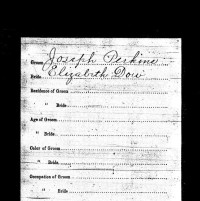 Groom Joseph Perkins
Bride Elizabeth Dow
Residence of Groom
" Bride
Age of Groom
" Bride
Color of Groom
" Bride
Occupation of Groom
" Bride